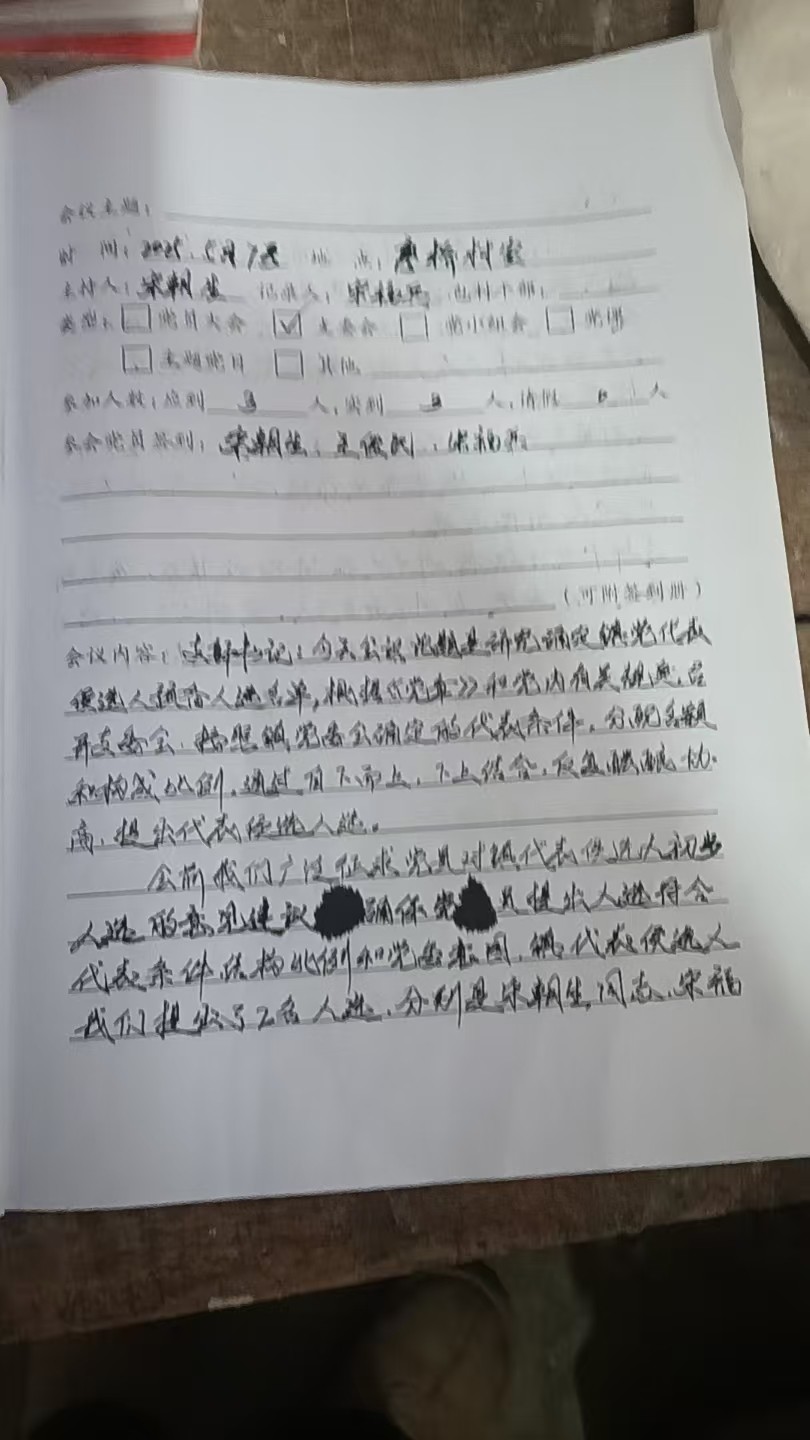 会议主题：
时 间：2025.5月7日 地 点：唐桥村室
主持人：宋朝生 记录人：宋福 驻村干部：
类型：□党员大会 ☑支委会 □党小组会 □党课
□主题党日 □其他
参加人数：应到 3 人，实到 3 人，请假 0 人
参会党员签到：宋朝生、王俊 、宋福
（可附签到册）
会议内容：支部书记：今天会议 是研究确定镇党代表
候选人预备人选名单，根据《党章》和党内有关规定，召
开支委会，按照镇党委会确定的代表条件，分配名额
和构成比例，通过自下而上，下上结合，反复酝酿协
商，提出代表候选人选。
会前我们广泛征求党员对镇代表候选人初步
人选的意见建议 确保党 员提出人选符合
代表条件结构比例和党委意图，镇代表候选人
我们提出了2名人选，分别是宋朝生同志、宋福